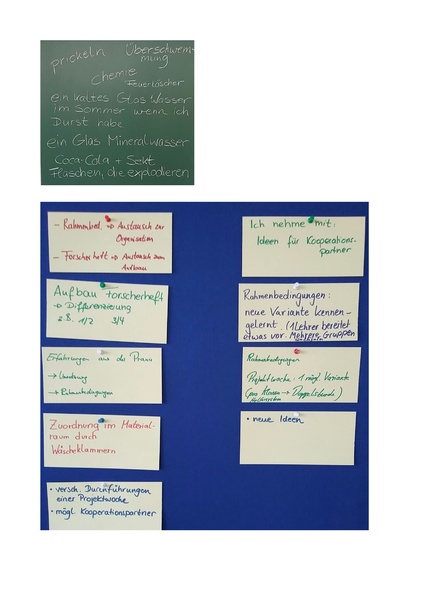 prickeln Überschwem-
mung
Chemie
Feuerlöscher
ein kaltes Glas Wasser
im Sommer wenn ich
Durst habe
ein Glas Mineralwasser
Coca-Cola + Sekt
Flaschen, die explodieren
- Rahmenbed. ⇒ Austausch zur
Organisation
- Forscherheft ⇒ Austausch zum
Aufbau
Aufbau Forscherheft
→ Differenzierung
z.B. 1/2 3/4
Erfahrungen aus der Praxis
→ Umsetzung
→ Rahmenbedingungen
Zuordnung im Material-
raum durch
Wäscheklammern
• versch. Durchführungen
einer Projektwoche
• mögl. Kooperationspartner
Ich nehme mit:
Ideen für Kooperations-
partner
Rahmenbedingungen:
neue Variante kennen-
gelernt. (1 Lehrer bereitet
etwas vor. Mehrere Gruppen
Rahmenbedingungen
Projektwoche: 1 mögl. Variante
(pro Klasse → Doppelstunde)
• neue Ideen